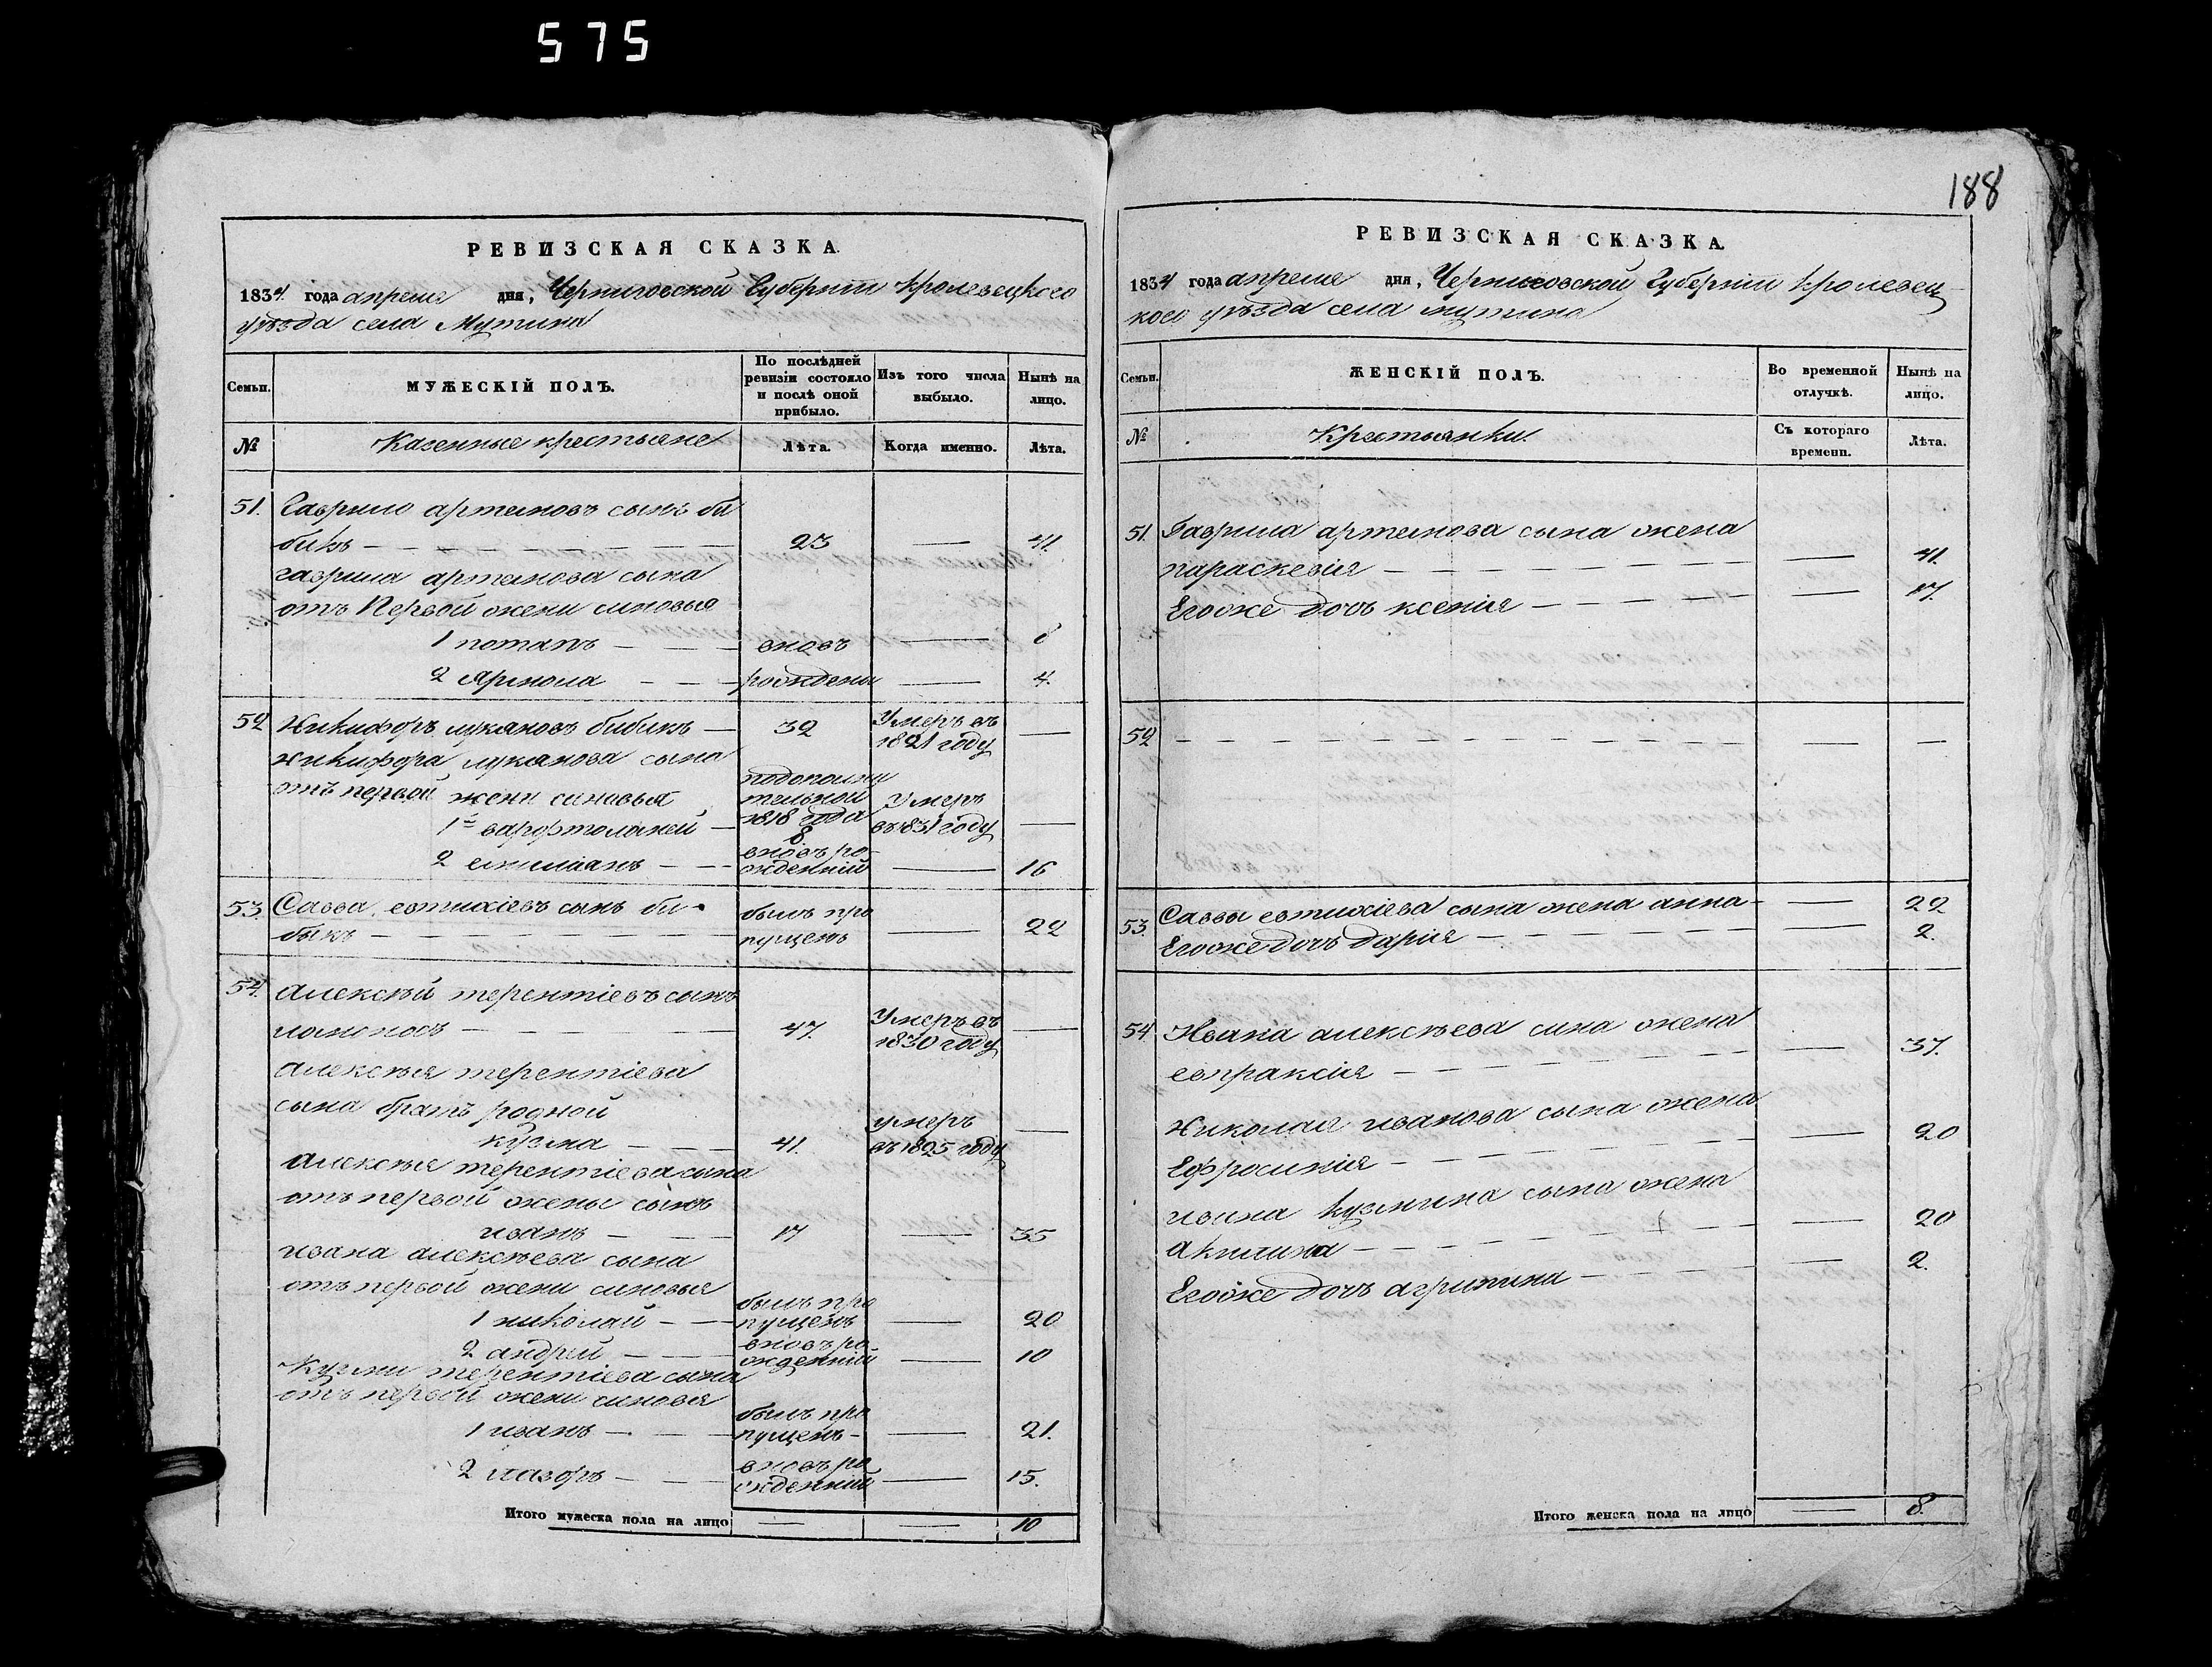 575
РЕВИЗСКАЯ СКАЗКА.
1834. года апреля дня, Черниговской Губернии Кролевецкого
уѣзда села Мутина
Семьи.
МУЖЕСКІЙ ПОЛЪ.
По послѣдней
ревизіи состояло
и послѣ оной
прибыло.
Изъ того числа
выбыло.
Нынѣ на
лицо.
№
Казенные крестьяне
Лѣта.
Когда именно.
Лѣта.
51. Гаврило артемовъ сынъ би
бикъ — 23 — 41.
гаврила артемова сына
отъ Первой жени синовья
1 потапъ — вновь — 8
2 Ярмола — рождены — 4.
52 Никифоръ лукяновъ бибикъ — 32 Умеръ въ 1821 году —
никифора лукянова сына
отъ первой жени синовья
1й варфтоломей — подополни
тельной
1818 года
8. Умеръ
въ 1831 году —
2 емиліанъ — вновь ро
жденній — 16
53. Савва евтихіевъ сынъ би
бикъ — былъ про
пущенъ — 22
54. Алексѣй терентіевъ сынъ
ломоносъ — 47. Умеръ въ
1830 году —
Алексѣя терентіева
сына братъ родной
кузма — 41. умеръ
въ 1825 году —
Алексѣя терентіева сына
отъ первой жены сынъ
иванъ — 17 — 35
ивана алексѣева сына
отъ первой жени синовья
1 николай — былъ про
пущенъ — 20
2 андрей — вновь ро
жденній — 10
Кузми терентіева сына
отъ первой жени синовя
1 иванъ — былъ про
пущенъ — 21.
2 лазоръ — вновь ро
жденній — 15.
Итого мужеска пола на лицо — — 10
188
РЕВИЗСКАЯ СКАЗКА.
1834 года апреля дня, Черниговской Губерніи Кролевец
кого уѣзда села мутина
Семьи.
ЖЕНСКІЙ ПОЛЪ.
Во временной
отлучкѣ.
Нынѣ на
лицо.
№
Крестьянки.
Съ котораго
времени.
Лѣта.
51. Гаврила артемова сына жена
параскевія — — 41.
Егоже дочь ксенія — — 17.
52 — — —
53. Саввы евтихіева сына жена анна — — 22
Егоже дочь дарія — — 2.
54 Ивана алексѣева сина жена
евпраксія — — 37.
Николая иванова сына жена
Ефросинія — — 20
ивана кузмина сына жена
Акилина — — 20
Егоже дочь агрипина — — 2.
Итого женска пола на лицо — 8.